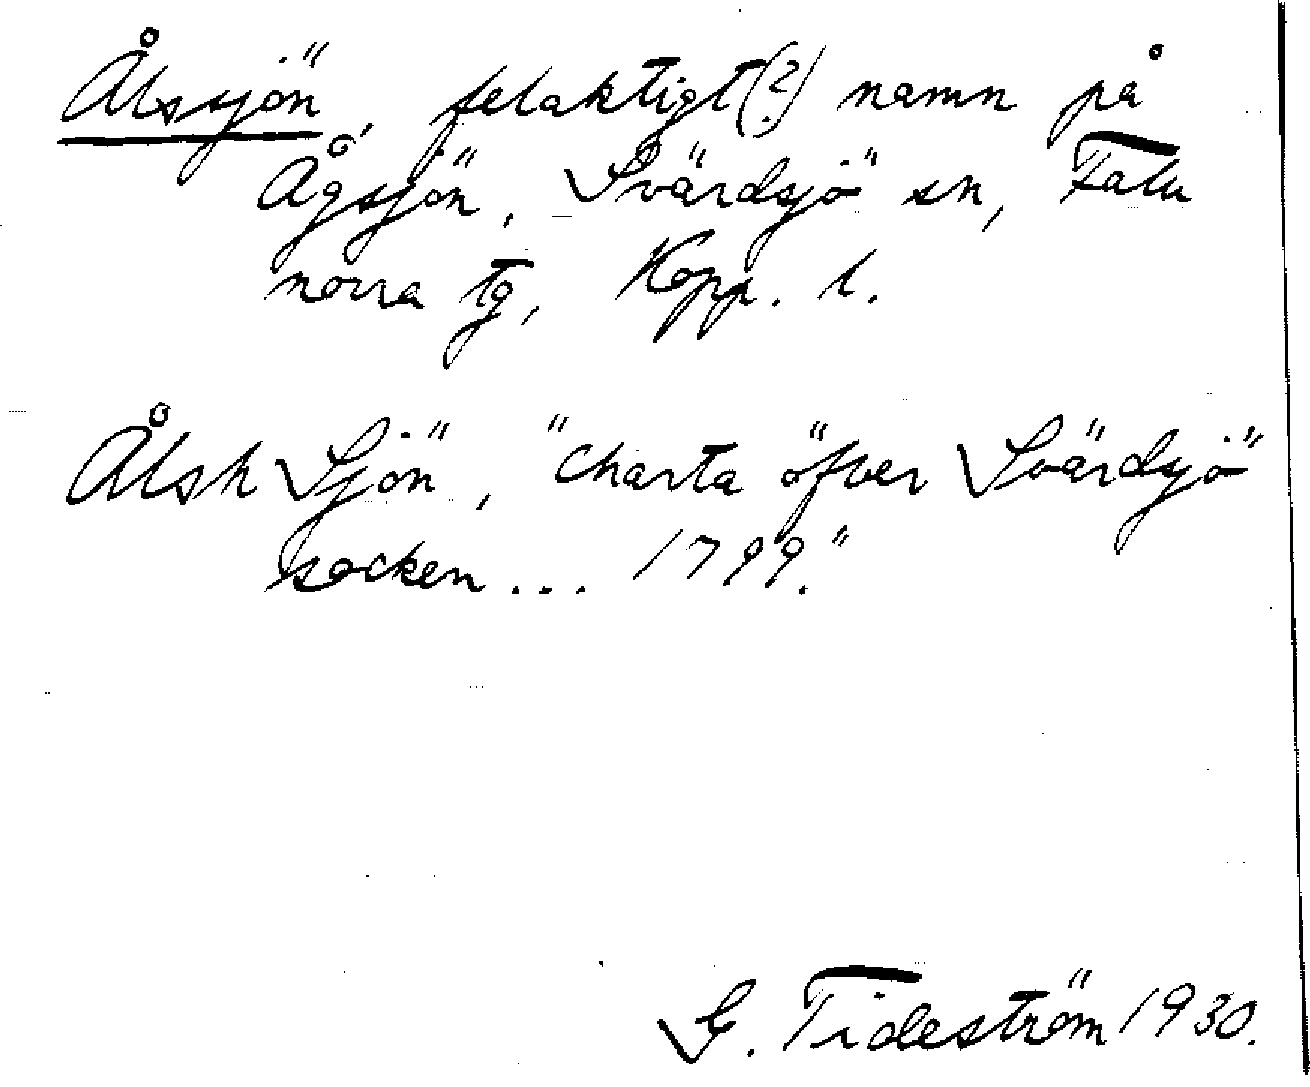 Ålssjön, felaktigt(?) namn på
Ågsjön, Svärdsjö sn, Falu
norra tg, Kopp. l.
Ålsh Sjön, "Charta öfver Svärdsjö
socken ... 1799."
G. Tideström 1930.